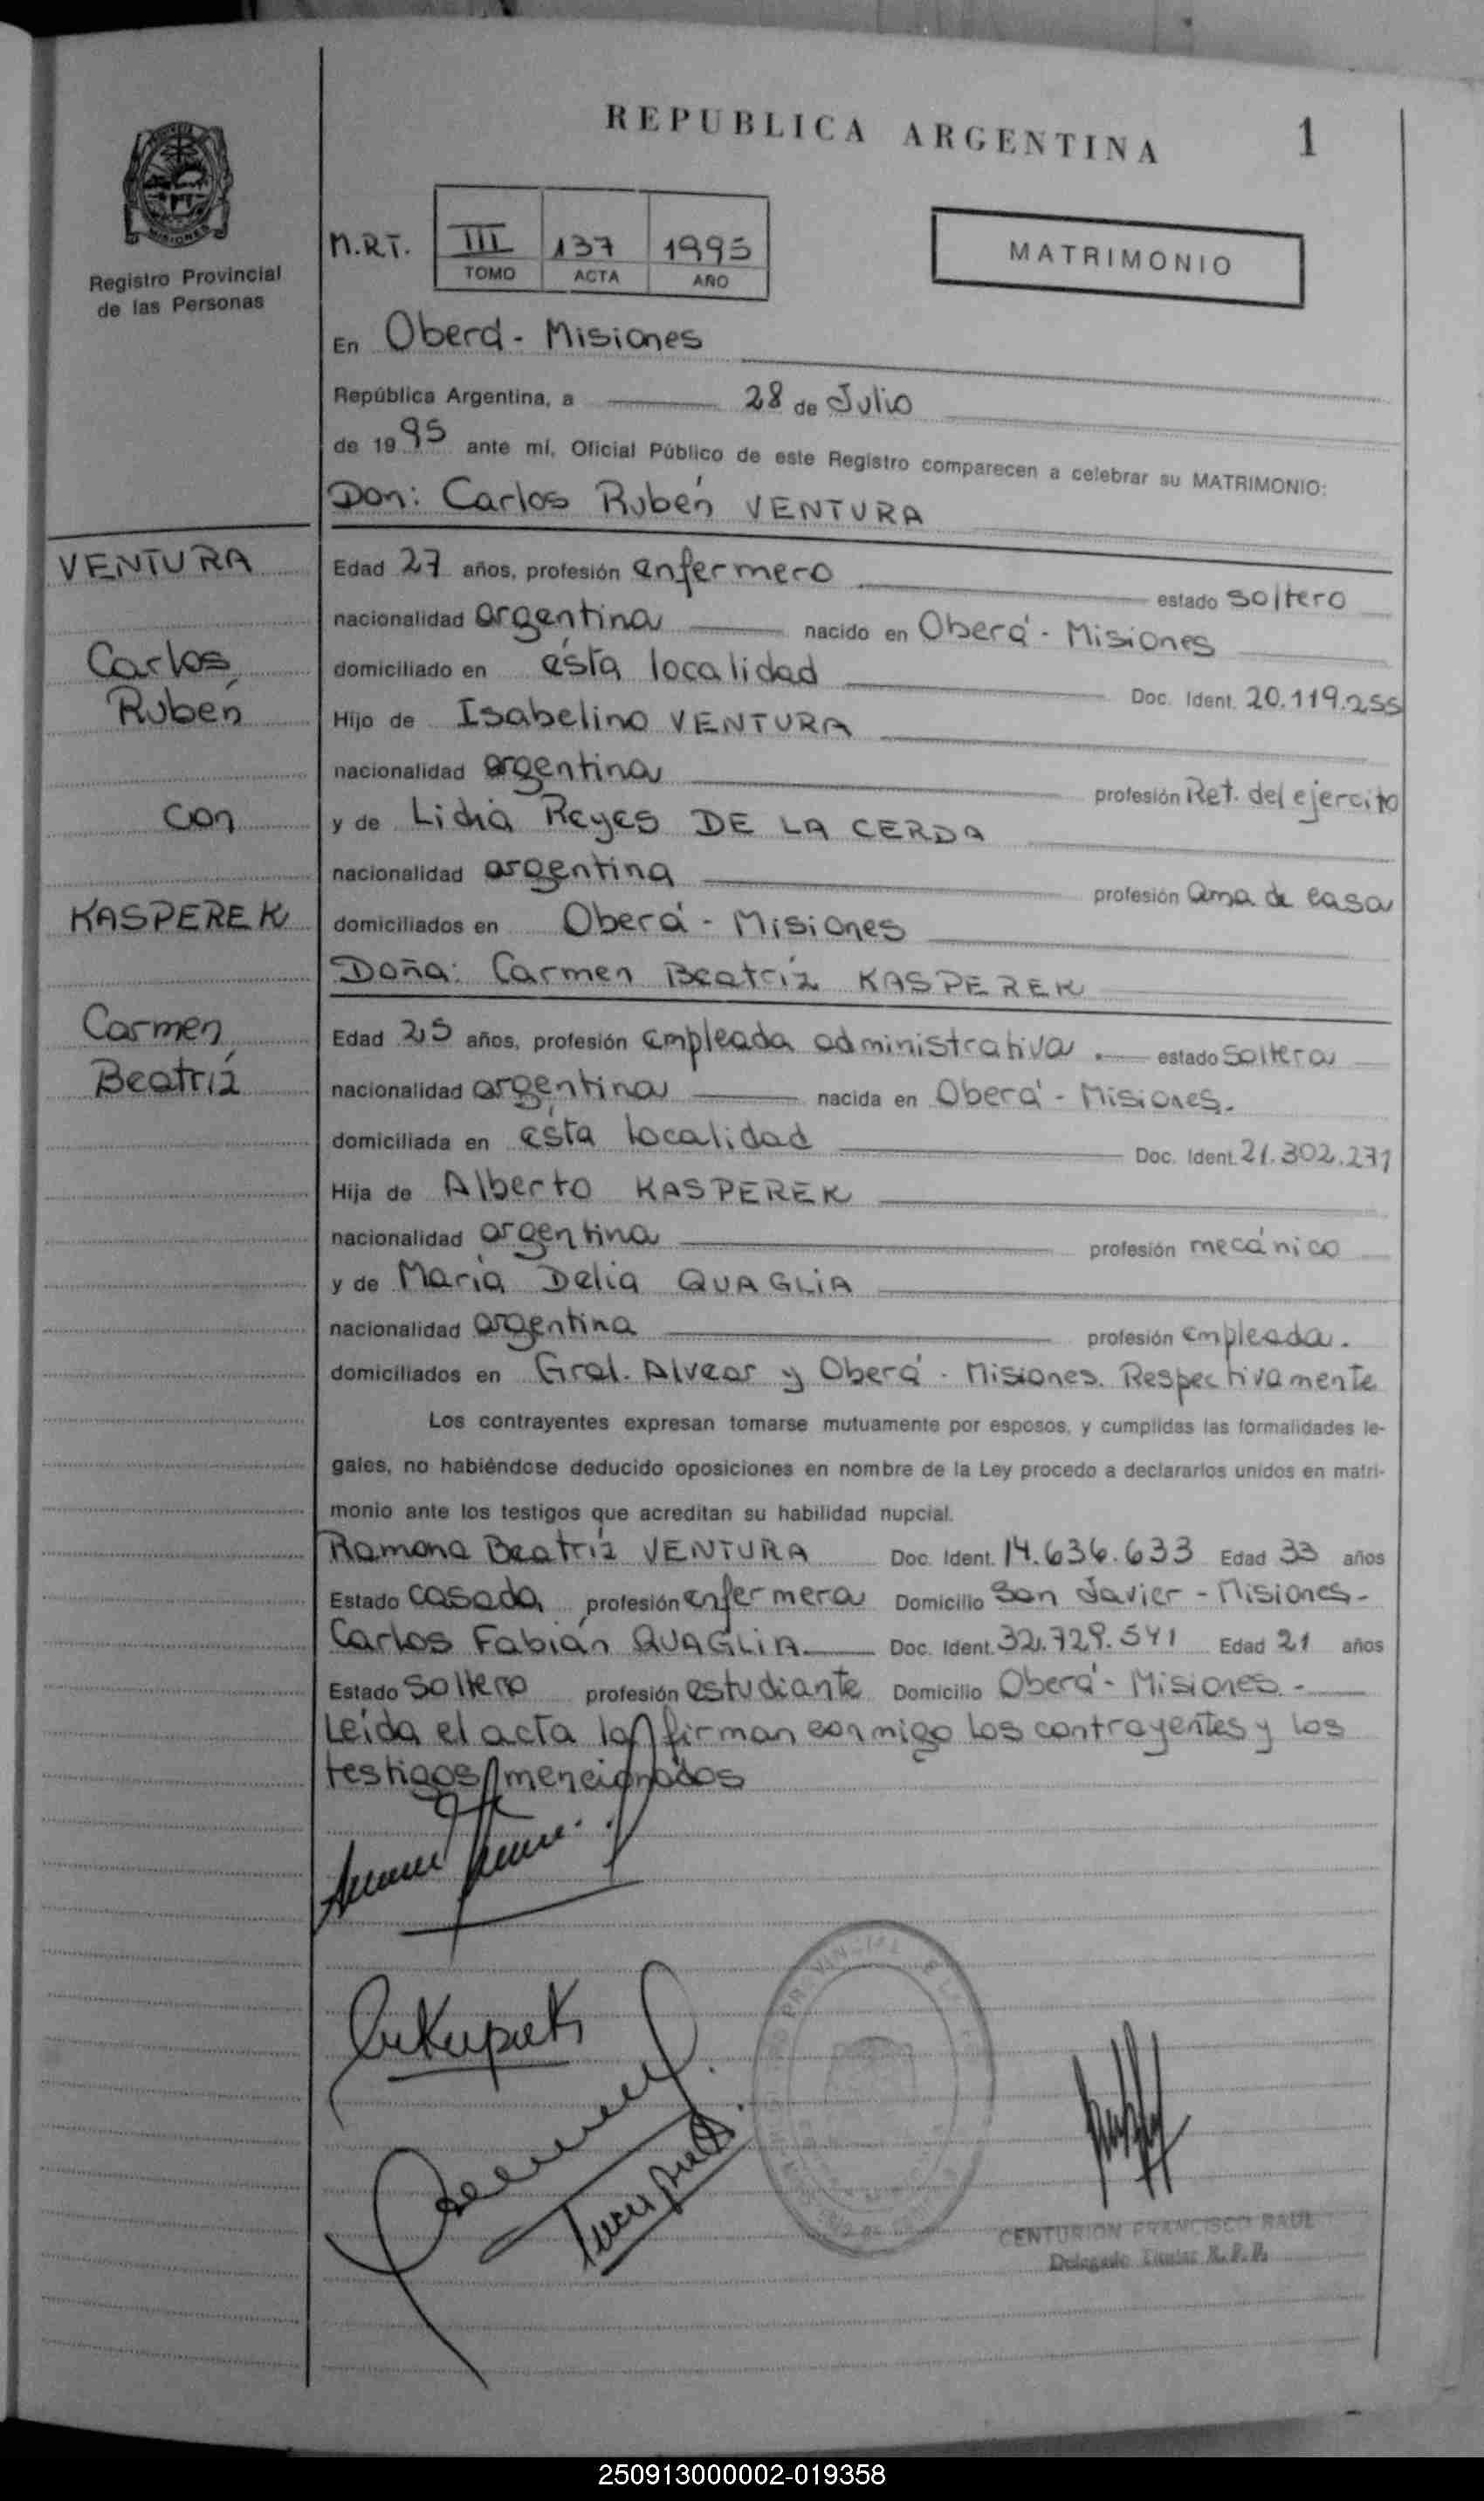 REPUBLICA ARGENTINA 1
MISIONES
Registro Provincial
de las Personas
M.R.T. III 137 1995
TOMO ACTA AÑO
MATRIMONIO
En Oberá - Misiones
República Argentina, a 28 de Julio
de 1995 ante mí, Oficial Público de este Registro comparecen a celebrar su MATRIMONIO:
Don: Carlos Rubén VENTURA
VENTURA
Carlos
Rubén
con
KASPEREK
Carmen
Beatríz
Edad 27 años, profesión enfermero estado soltero
nacionalidad argentina nacido en Oberá - Misiones
domiciliado en ésta localidad Doc. Ident. 20.119.255
Hijo de Isabelino VENTURA
nacionalidad argentina profesión Ret. del ejercito
y de Lidia Reyes DE LA CERDA
nacionalidad argentina profesión ama de casa
domiciliados en Oberá - Misiones
Doña: Carmen Beatríz KASPEREK
Edad 25 años, profesión empleada administrativa . estado soltera
nacionalidad argentina nacida en Oberá - Misiones.
domiciliada en ésta localidad Doc. Ident. 21.302.271
Hija de Alberto KASPEREK
nacionalidad argentina profesión mecánico
y de María Delia QUAGLIA
nacionalidad argentina profesión empleada.
domiciliados en Gral. Alvear y Oberá - Misiones. Respectivamente
Los contrayentes expresan tomarse mutuamente por esposos, y cumplidas las formalidades le-
gales, no habiéndose deducido oposiciones en nombre de la Ley procedo a declararlos unidos en matri-
monio ante los testigos que acreditan su habilidad nupcial.
Ramona Beatríz VENTURA Doc. Ident. 14.636.633 Edad 33 años
Estado casada profesión enfermera Domicilio San Javier - Misiones-
Carlos Fabián QUAGLIA Doc. Ident. 32.729.541 Edad 21 años
Estado soltero profesión estudiante Domicilio Oberá - Misiones.-
Leída el acta la firman conmigo los contrayentes y los
testigos mencionados
CENTURION FRANCISCO RAUL
Delegado Titular R.P.P.
250913000002-019358